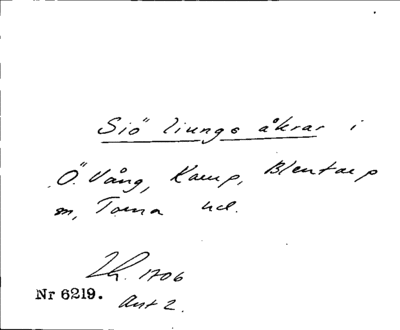 Siö" liungs åkrar i
Ö. Vång, Kamp, Blentarp
sn, Torna hd.
Lh. 1706
Nr 6219. Akt 2.